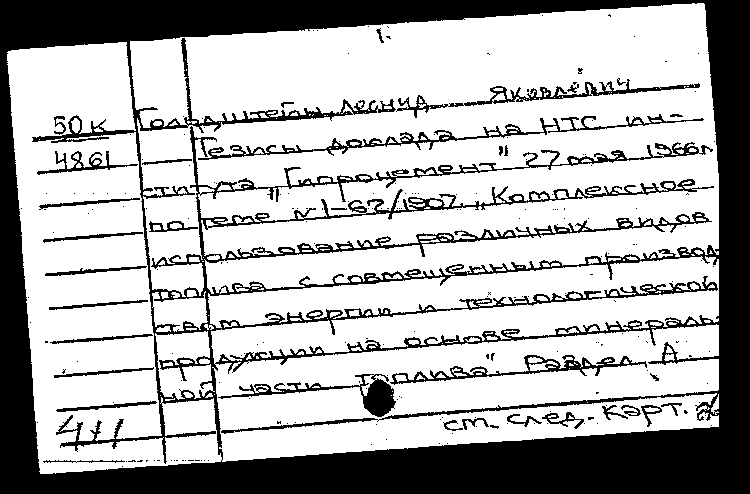 1.
50к Гольдштейн, Леонид Яковлевич
4861 Тезисы доклада на НТС ин-
ститута "Гипроцемент" 27 мая 1966г.
по теме №1-62/1907 "Комплексное
использование различных видов
топлива с совмещенным производ-
ством энергии и технологической
продукции на основе минераль-
ной части топлива". Раздел А.
4+1
см. след. карт.